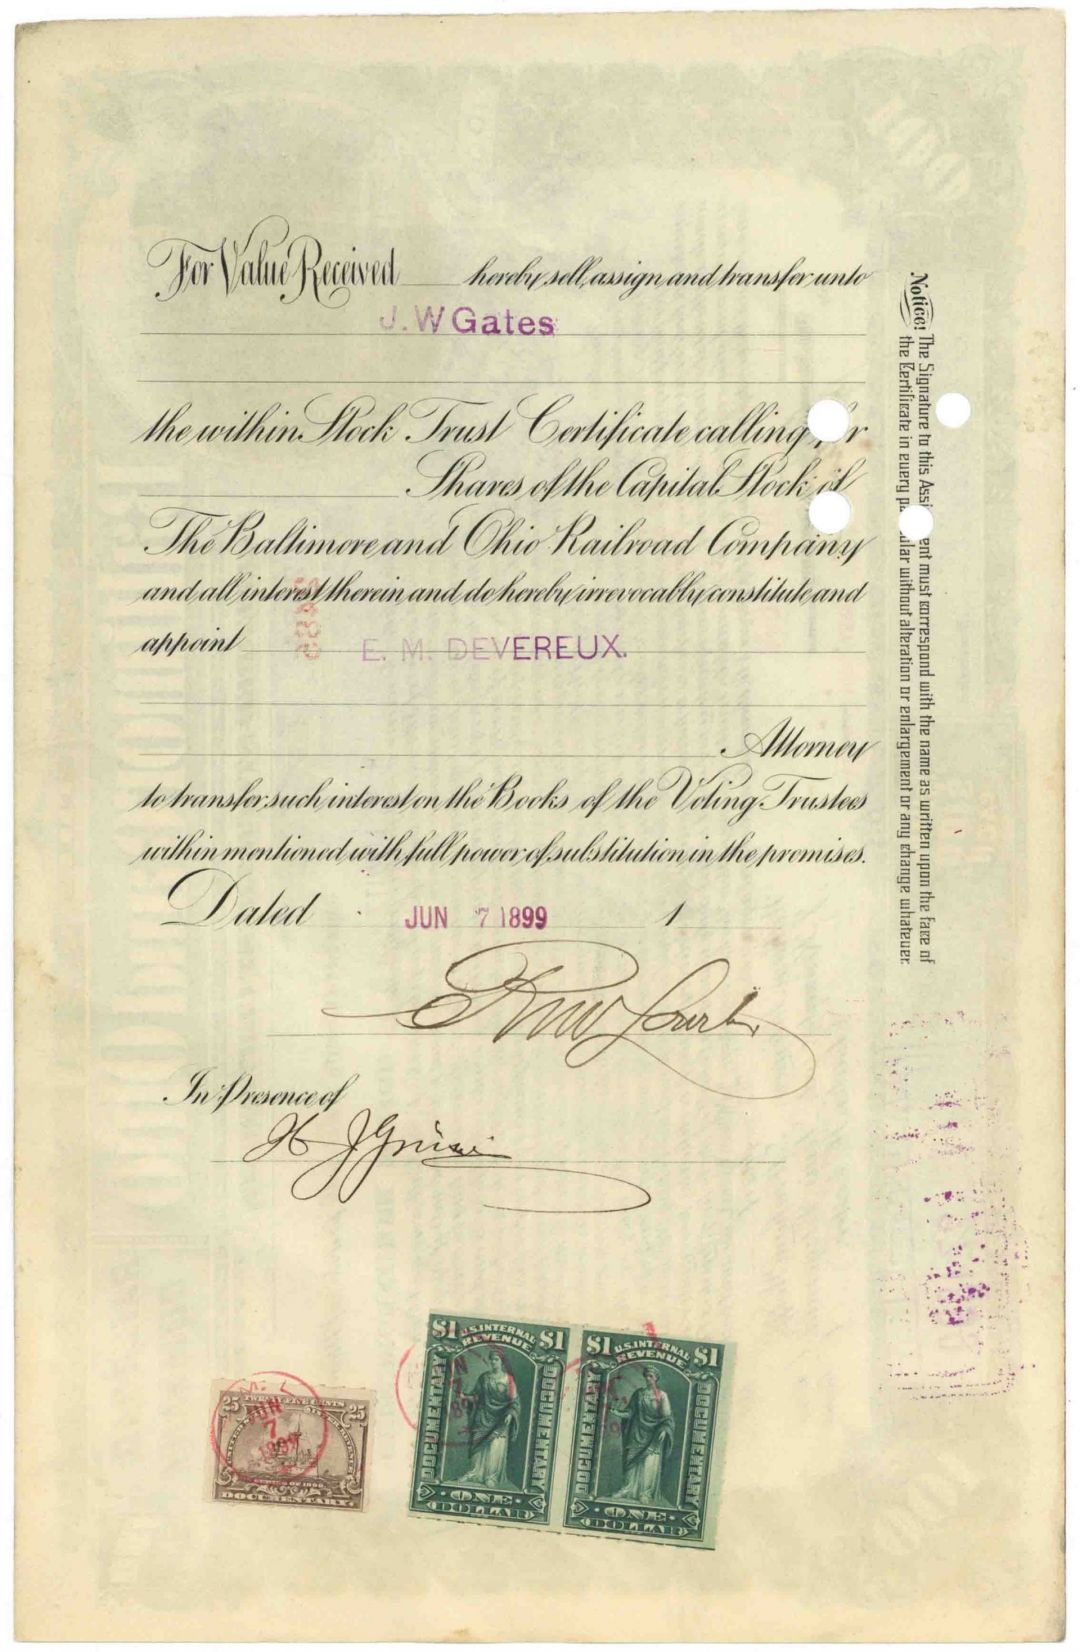 For Value Received hereby sell, assign and transfer unto
J. W Gates
the within Stock Trust Certificate calling for
Shares of the Capital Stock of
The Baltimore and Ohio Railroad Company
and all interest therein, and do hereby irrevocably constitute and
appoint E. M. DEVEREUX.
Attorney
to transfer such interest on the Books of the Voting Trustees
within mentioned with full power of substitution in the premises.
Dated JUN 7 1899 1
In Presence of
Notice! The Signature to this Assi ent must correspond with the name as written upon the face of
the Certificate in every p ular without alteration or enlargement or any change whatever.
25 TWENTY FIVE CENTS 25
JUN
7
1899
DOCUMENTARY
$1 U.S. INTERNAL REVENUE $1
DOCUMENTARY DOCUMENTARY
ONE
DOLLAR
$1 U.S. INTERNAL REVENUE $1
DOCUMENTARY DOCUMENTARY
ONE
DOLLAR